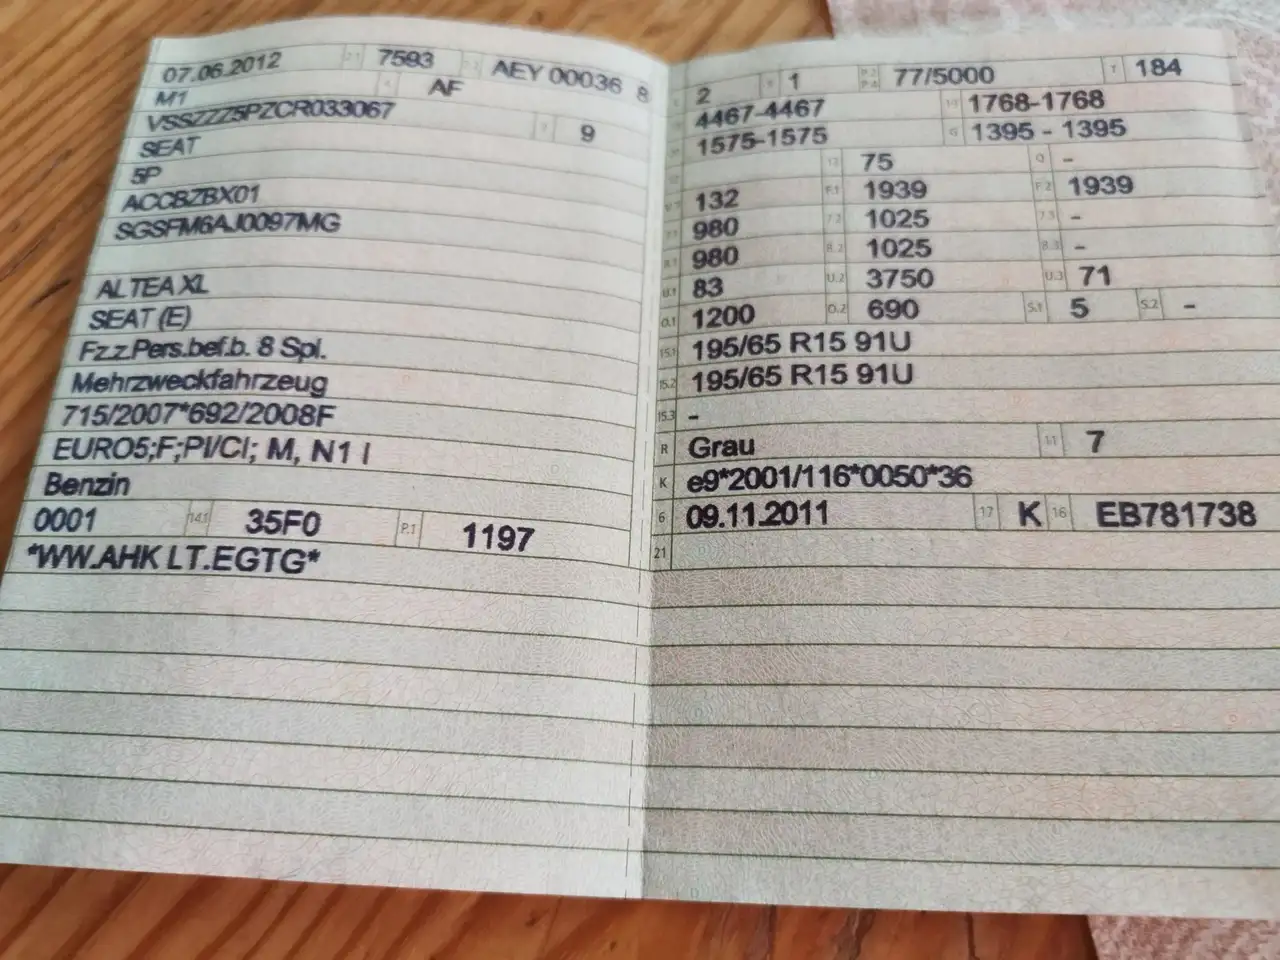 07.06.2012 2.1 7593 2.2 AEY 00036 8
M1 4 AF
VSSZZZ5PZCR033067 3 9
SEAT
5P
ACCBZBX01
SGSFM6AJ0097MG
ALTEA XL
SEAT (E)
Fz.z.Pers.bef.b. 8 Spl.
Mehrzweckfahrzeug
715/2007*692/2008F
EURO5;F;PI/CI; M, N1 I
Benzin
0001 14.1 35F0 P.1 1197
*WW.AHK LT.EGTG*
2 9 1 P.2 P.4 77/5000 T 184
4467-4467 1768-1768
1575-1575 G 1395 - 1395
13 75 Q -
132 F.1 1939 F.2 1939
980 7.2 1025 7.3 -
8.1 980 8.2 1025 8.3 -
U.1 83 U.2 3750 U.3 71
O.1 1200 O.2 690 S.1 5 S.2 -
15.1 195/65 R15 91U
15.2 195/65 R15 91U
15.3 -
R Grau 11 7
K e9*2001/116*0050*36
6 09.11.2011 17 K 16 EB781738
21